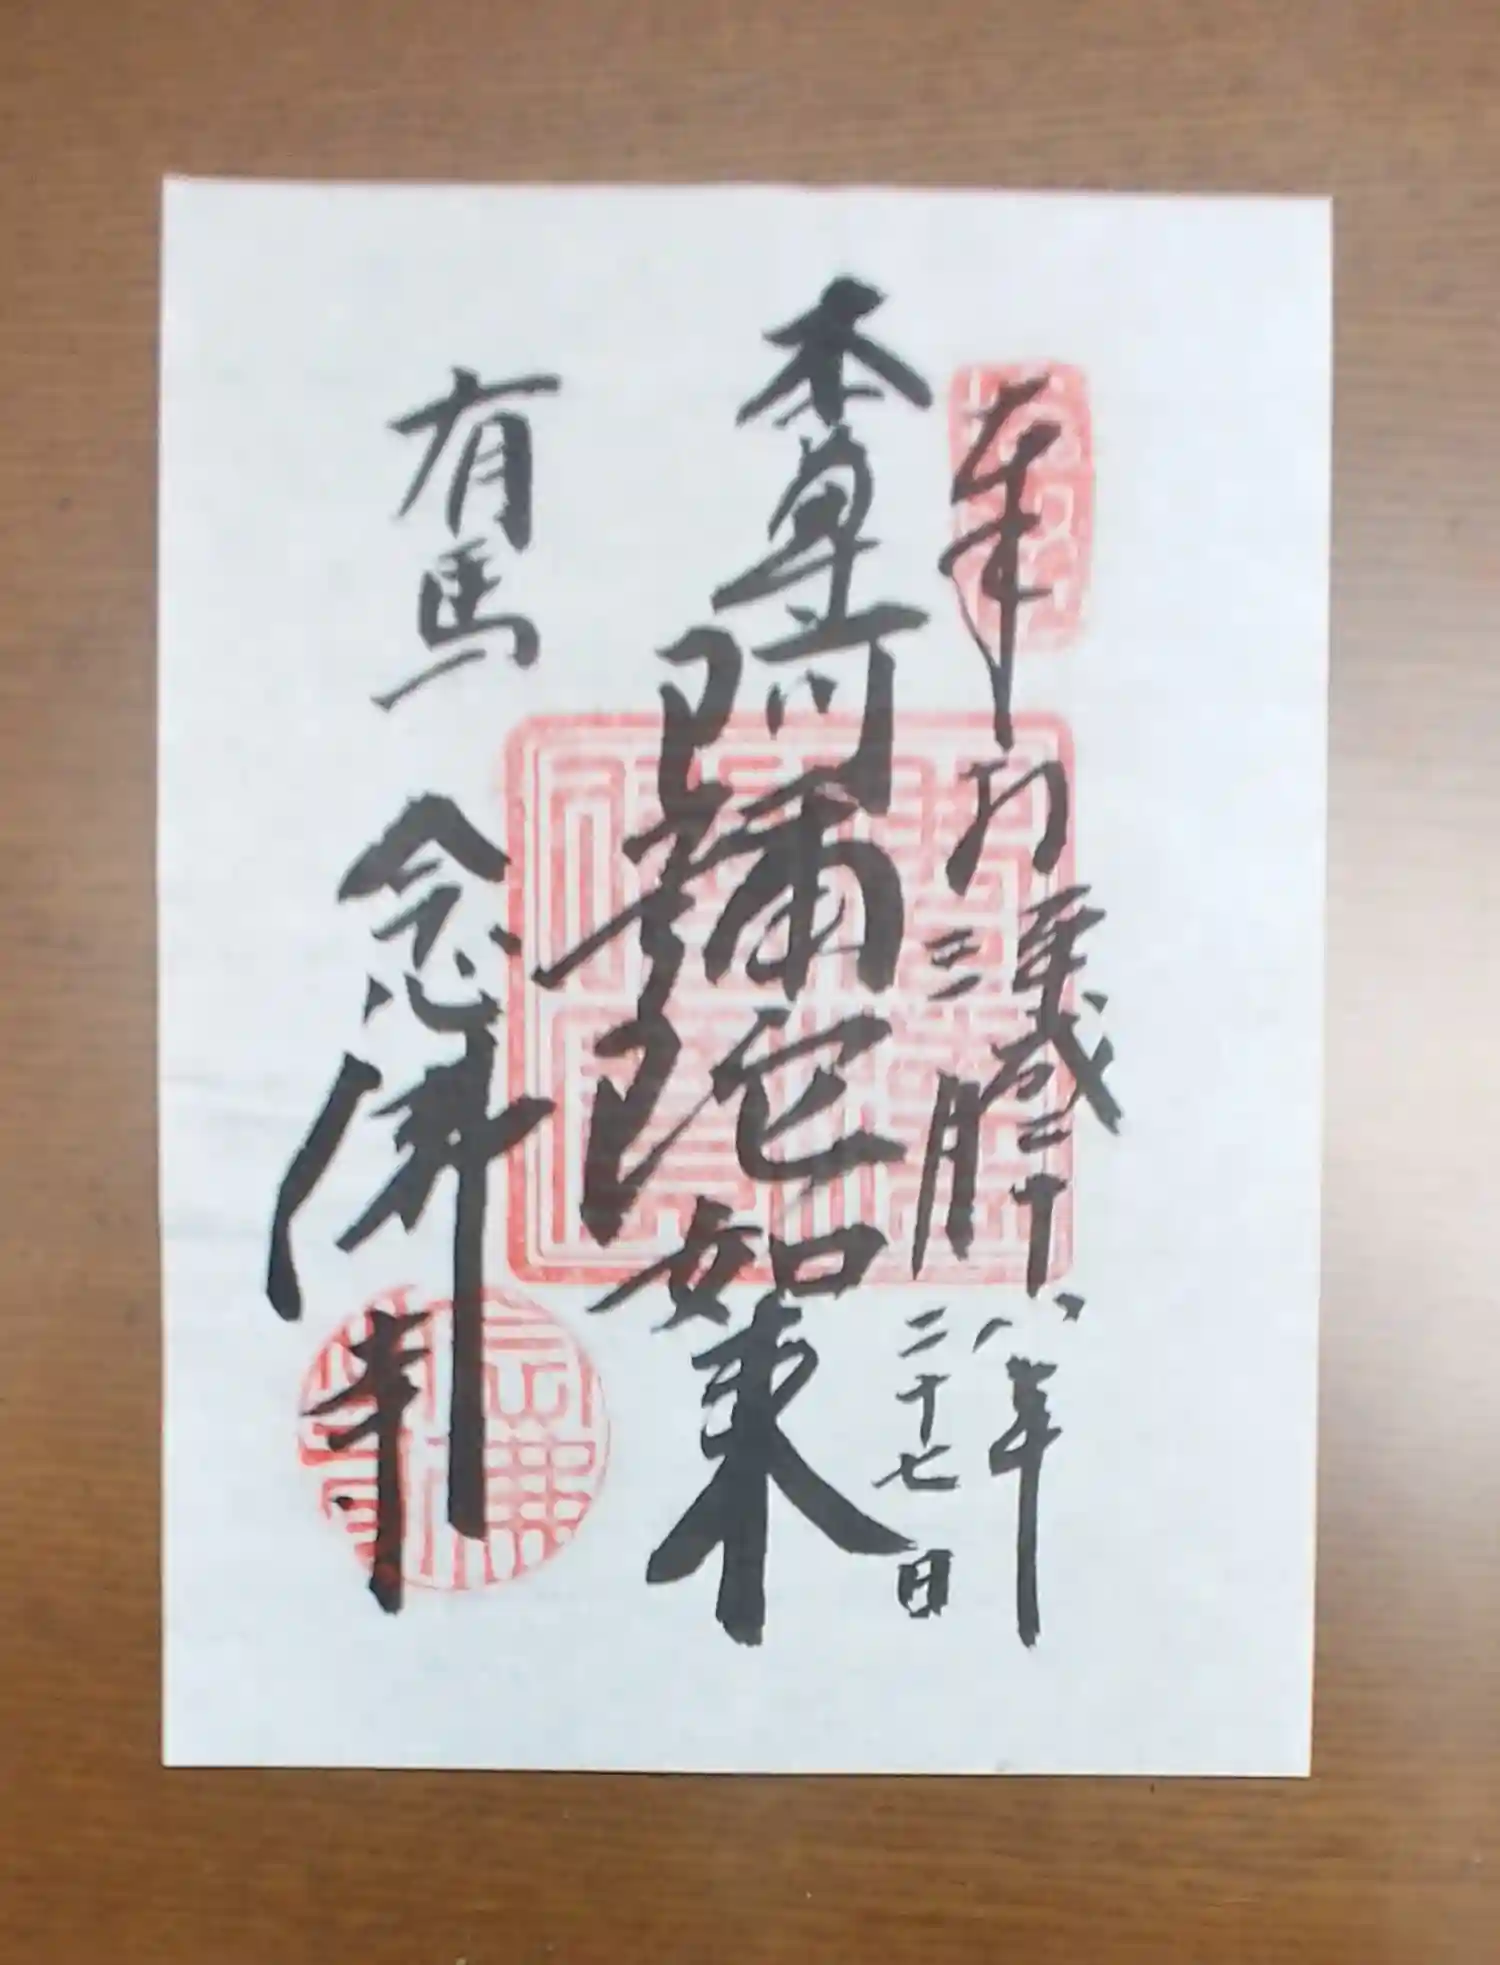 奉拝
平成二十八年
三月二十七日
本尊 阿彌陀如来
有馬 念佛寺